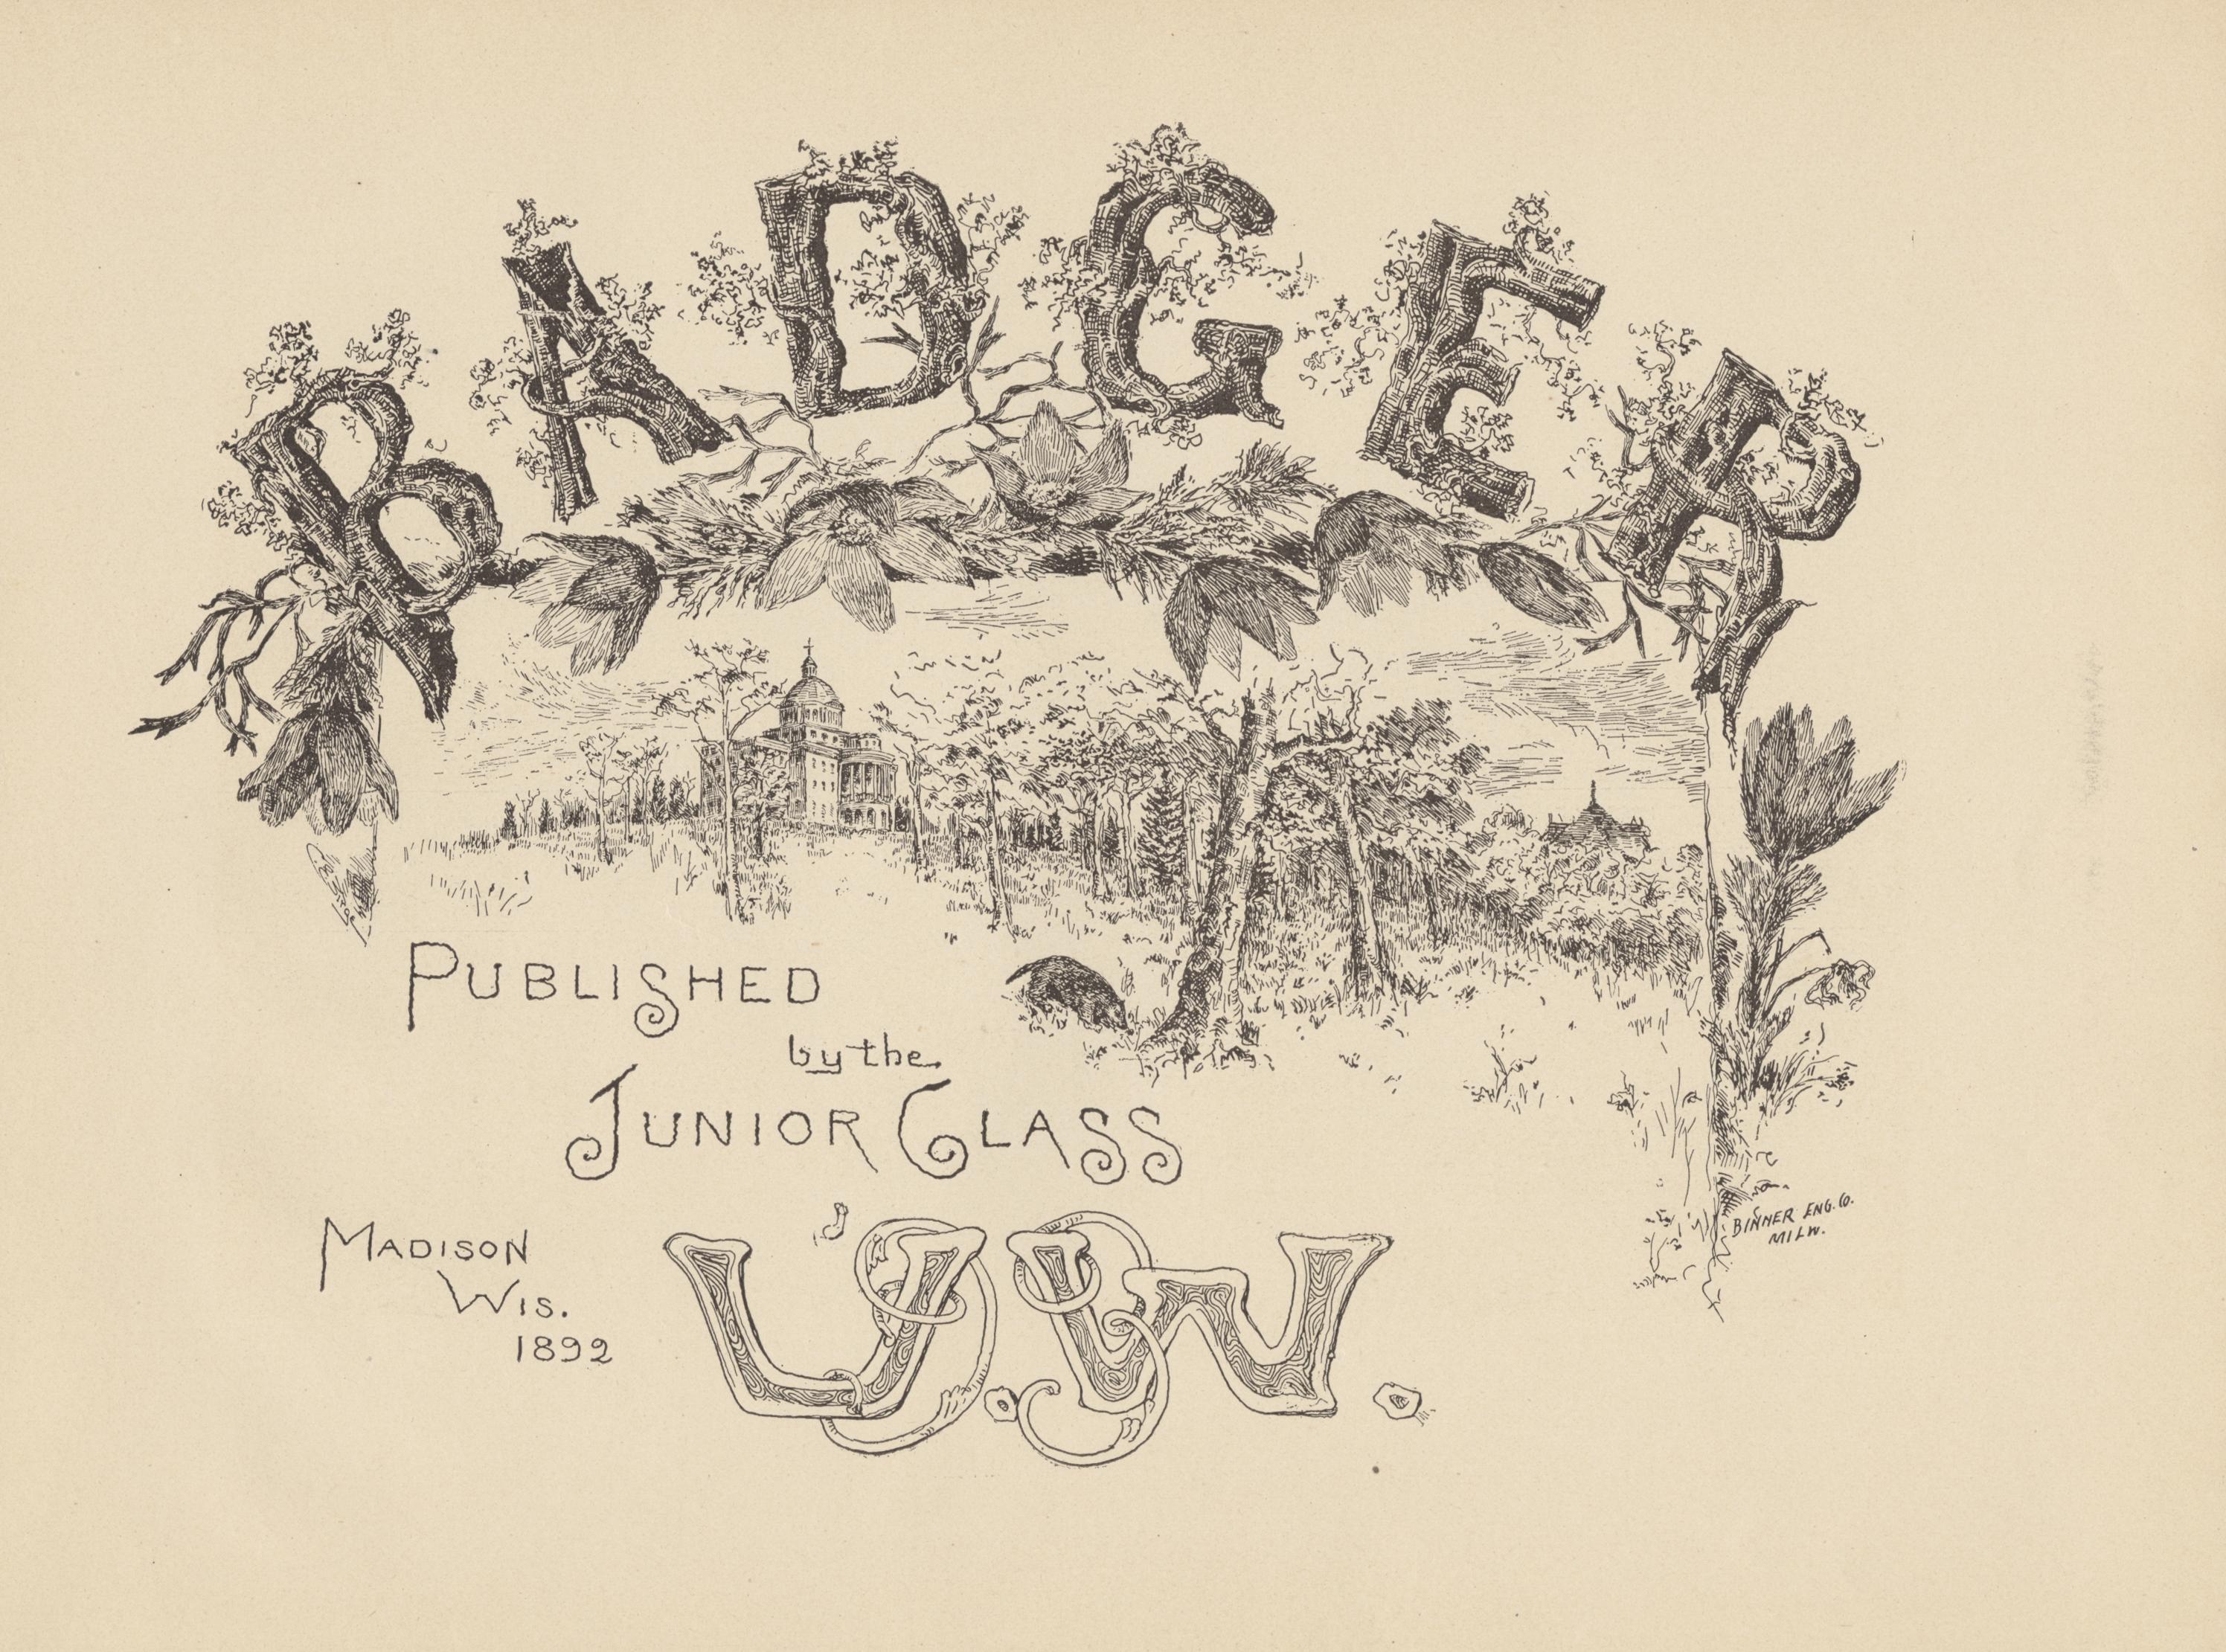 BADGER
PUBLISHED
by the
JUNIOR CLASS
MADISON
WIS.
1892
U. W.
BINNER ENG. CO.
MILW.